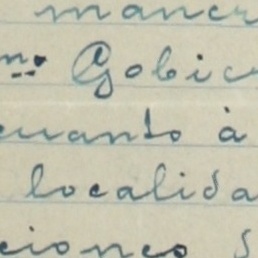 maner
mo. Gobier
cuanto à
localida
ciones s